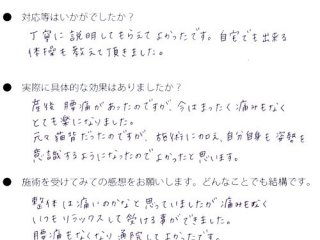 ● 対応等はいかがでしたか？
丁寧に説明してもらえてよかったです。自宅でも出来る
体操も教えて頂きました。
● 実際に具体的な効果はありましたか？
産後 腰痛があったのですが、今はまったく痛みもなく
とても楽になりました。
元々猫背だったのですが、施術に加え、自分自身も姿勢を
意識するようになったのでよかったと思います。
● 施術を受けてみての感想をお願いします。どんなことでも結構です。
整体は痛いのかなと思っていましたが痛みもなく
いつもリラックスして受ける事ができました。
腰痛もなくなり通院してよかったです。